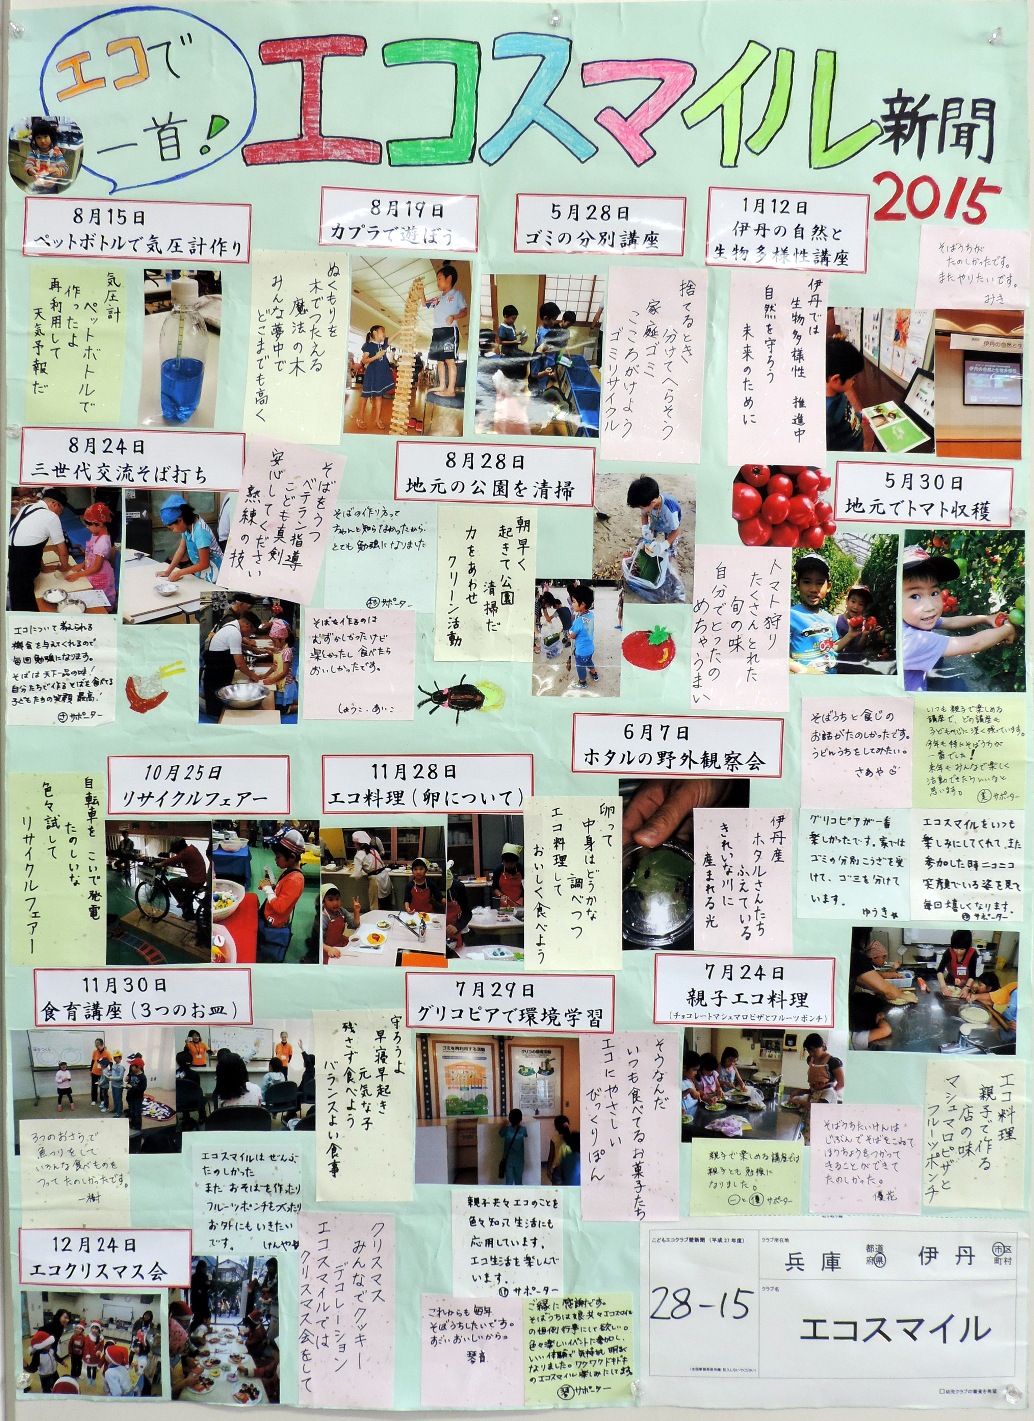 エコで
一首!
エコスマイル
新聞
2015
8月15日
ペットボトルで気圧計作り
8月19日
カプラで遊ぼう
5月28日
ゴミの分別講座
1月12日
伊丹の自然と
生物多様性講座
そばうちが
たのしかったです。
またやりたいです。
みき
気圧計
ペットボトルで
作ったよ
再利用して
天気予報だ
ぬくもりを
木でつたえる
魔法の木
みんな夢中で
どこまでも高く
捨てるとき、
分けてへらそう
家庭ゴミ
こころがけよう
ゴミリサイクル
伊丹では
生物多様性 推進中
自然を守ろう
未来のために
8月24日
三世代交流そば打ち
そばをうつ
ベテラン指導
こども真剣
安心してください
熟練の技
8月28日
地元の公園を清掃
5月30日
地元でトマト収穫
そばの作り方って
ちゃんと知らなかったから
とても勉強になりました
サポーター
朝早く
起きて公園
清掃だ
力をあわせ
クリーン活動
トマト狩り
たくさんとれた
旬の味
自分でとったの
めちゃうまい
エコについて考えられる
機会を与えてくれるので
毎回勉強になります。
そばは天下一品の味!
自分たちで作るそばを食べてる
子どもたちの笑顔 最高!
サポーター
そばを作るのは
むずかしかったけど
楽しかったし食べたら
おいしかったです。
しょうこ・あいこ
6月7日
ホタルの野外観察会
そばうちと食じの
お話がたのしかったです。
うどんうちをしてみたい。
さあや
いつも親子で楽しめる
講座で、どの講座も
子どもが心に深く残っています。
今年も特にそばうちが
一番でした!
来年もみんなで楽しく
活動できたらいいなと
思います。
サポーター
10月25日
リサイクルフェアー
11月28日
エコ料理(卵について)
自転車を こいで発電
たのしいな
色々試して
リサイクルフェアー
卵って
中身はどうかな
調べつつ
エコ料理して
おいしく食べよう
伊丹産
ホタルさんたち
ふえている
きれいな川に
産まれる光
グリコピアが一番
楽しかたです。家では
ゴミの分別こうざを受
けて、ゴミを分けて
います。
ゆうき
エコスマイルをいつも
楽しみにしてくれ、また
参加した時ニコニコ
笑顔でいる姿を見て
毎回嬉しくなります。
サポーター
11月30日
食育講座(3つのお皿)
7月29日
グリコピアで環境学習
7月24日
親子エコ料理
(チョコレートマシュマロピザとフルーツポンチ)
守ろうよ
早寝早起き
元気な子
残さず食べよう
バランスよい食事
そうなんだ
いつも食べてるお菓子たち
エコにやさしい
びっくりぽん
エコ料理
親子で作る
店の味
マシュマロピザと
フルーツポンチ
3つのおさらで
魚つりをして
いろんな食べものを
つってたのしかったです。
一樹
エコスマイルはぜんぶ
たのしかった
また おそばを作ったり
フルーツポンチをつくったり
お外にもいきたい
です。 けんや
親子で楽しめる講座では
親子とも勉強に
なりました。
サポーター
そばうちたいけんは
じぶんでそばをこねて
ほうちょうをつかって
きることができて
たのしかった。
優花
親子共々エコのことを
色々知って生活にも
応用しています。
エコ生活を楽しんで
います。
サポーター
12月24日
エコクリスマス会
クリスマス
みんなでクッキー
デコレーション
エコスマイルでは
クリスマス会をして
これからも毎年
そばうちしたいです。
すごいおいしいから。
琴音
ご縁に感謝です。
そばうちは是非共々エコスマイル
の恒例行事にして欲しい。
サポーター
こどもエコクラブ壁新聞(平成27年度)
28-15
クラブ所在地
兵庫 都道府県 伊丹 市区町村
クラブ名
エコスマイル